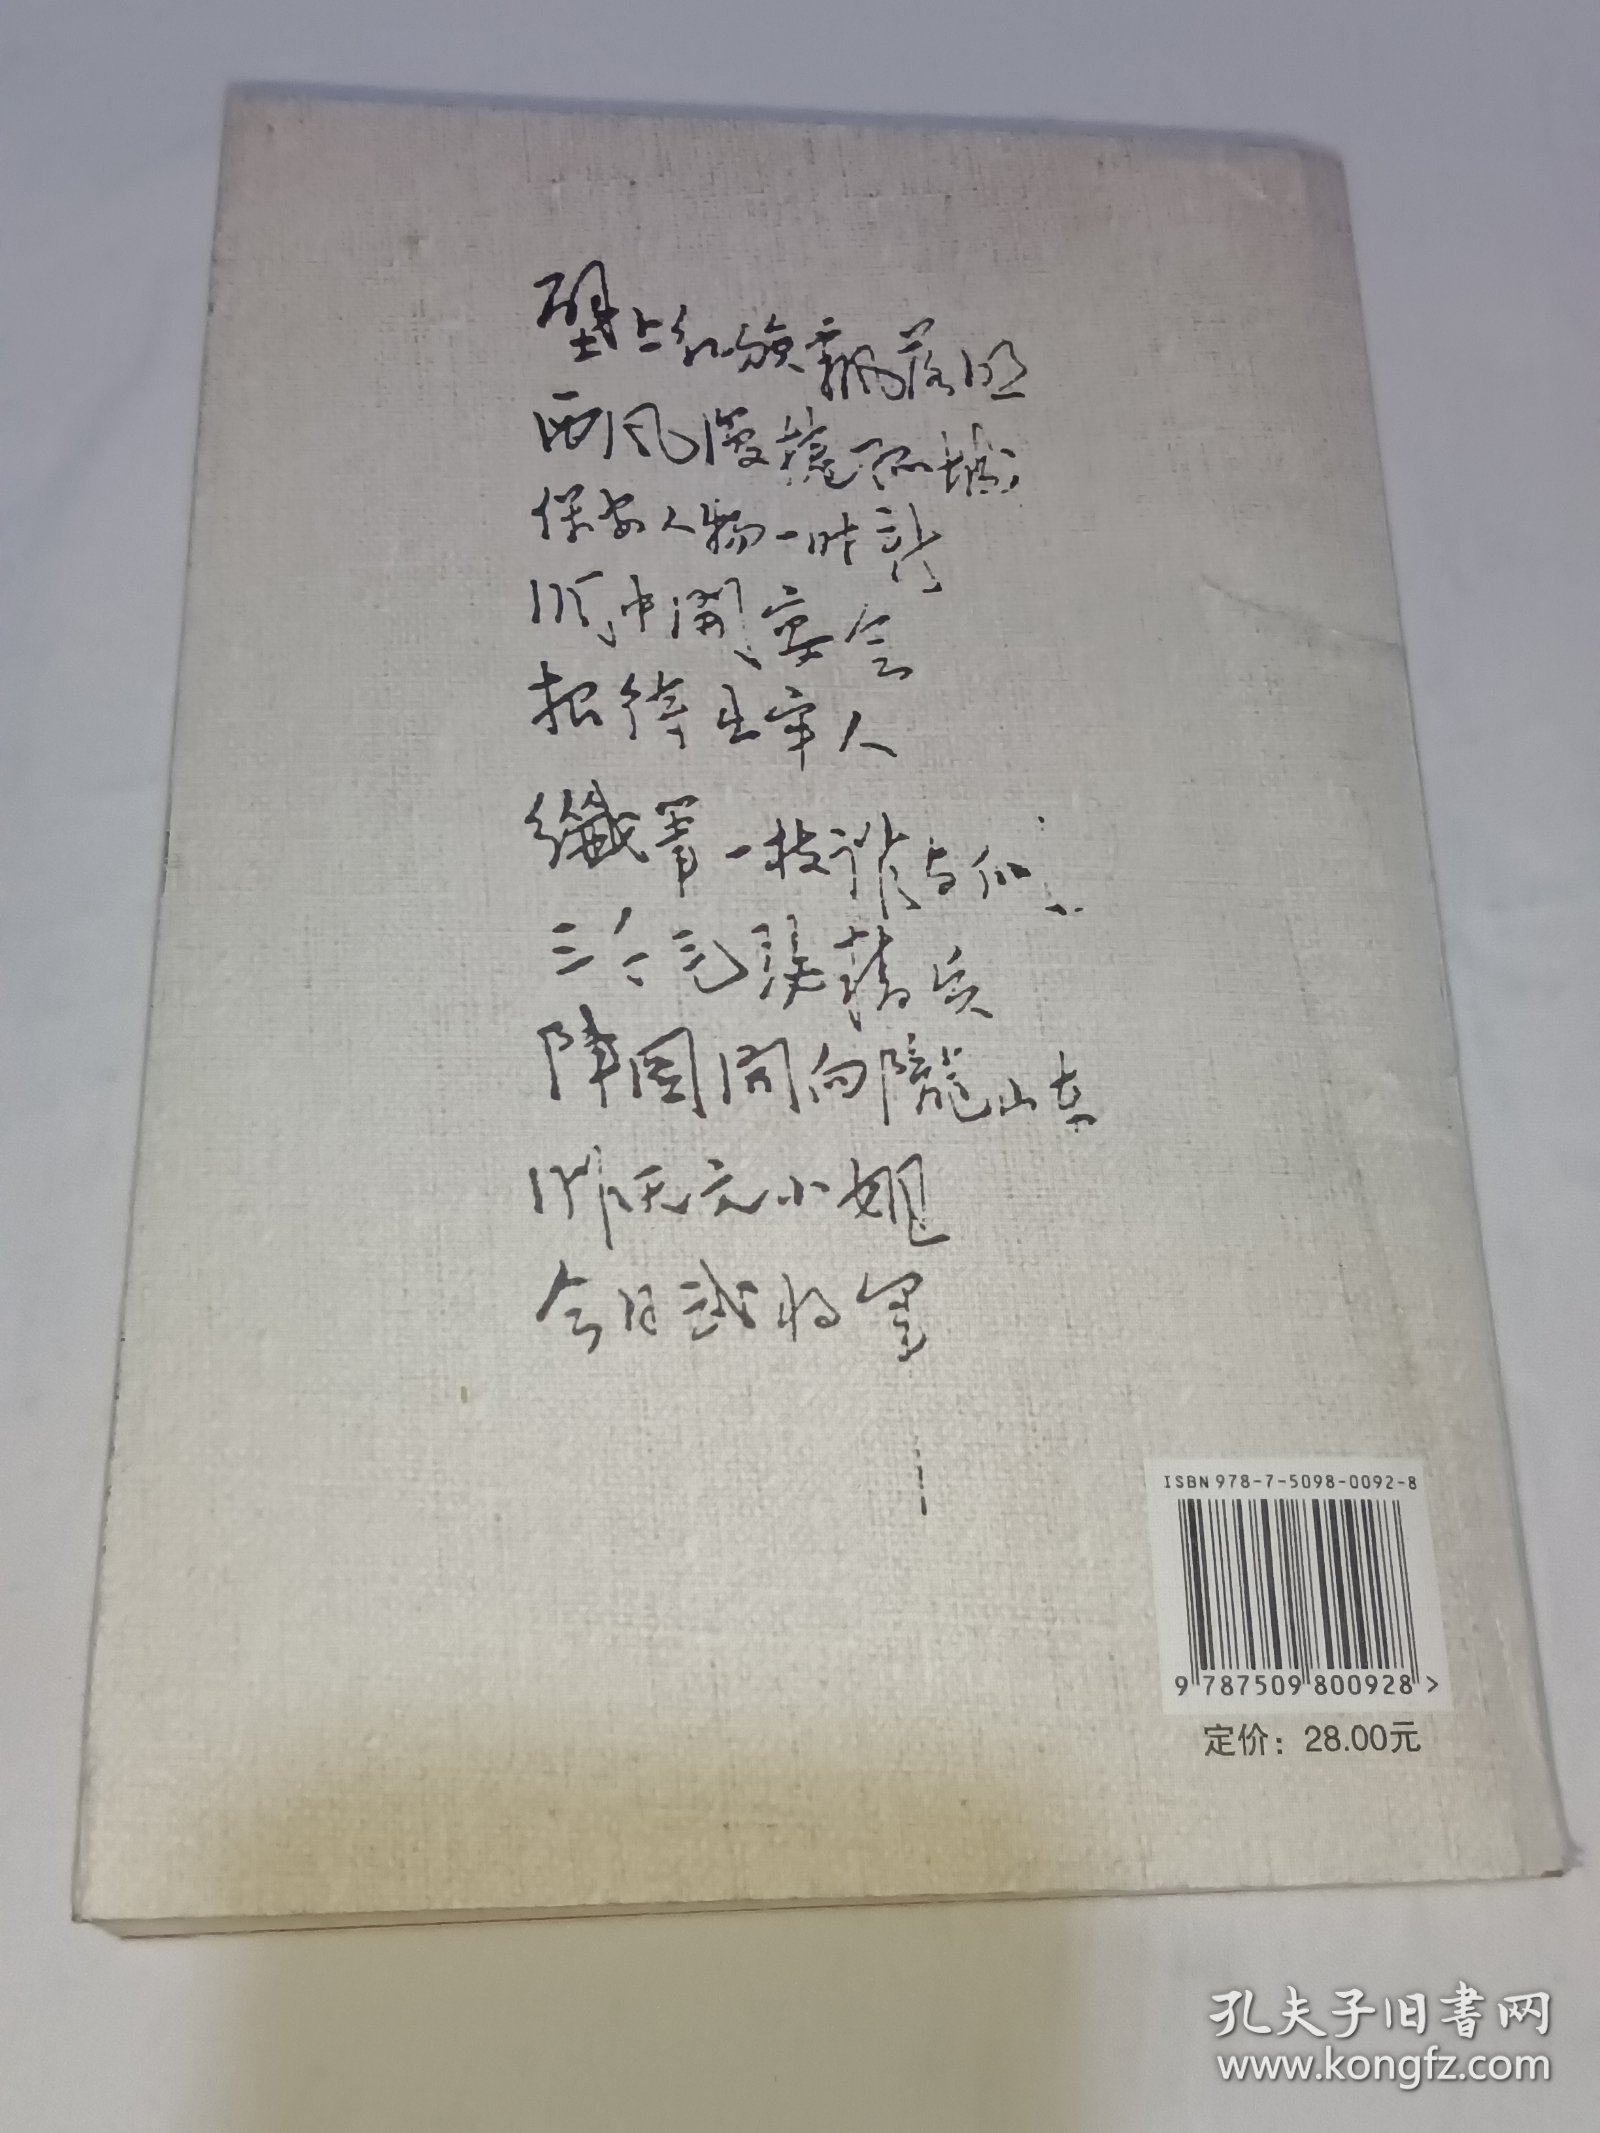 壁上红旗飘落照
西风漫卷孤城
保安人物一时新
洞中開宴会
招待出牢人
纖筆一枝谁与似
三千毛瑟精兵
陣图開向隴山东
昨天文小姐
今日武将军
ISBN 978-7-5098-0092-8
9 787509 800928 >
定价：28.00元
孔夫子旧书网
www.kongfz.com